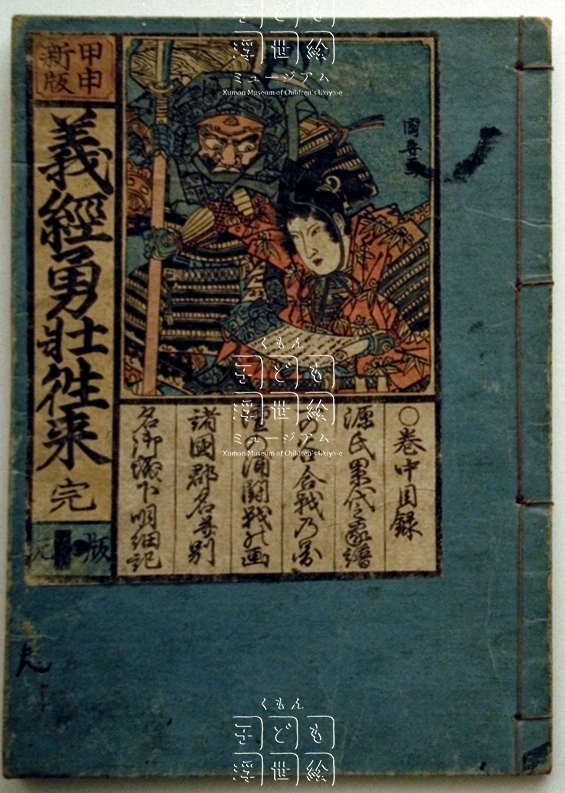 甲申
新版
義經勇壯往来 完
版
元
○巻中目録
源氏累代之家譜
合戦乃圖
闘戦の画
諸國郡名并別
名御城下明細記
くもん
子ども
浮世絵
ミュージアム
Kumon Museum of Children's Ukiyo-e
くもん
子ども
浮世絵
ミュージアム
Kumon Museum of Children's Ukiyo-e
くもん
子ども
浮世絵